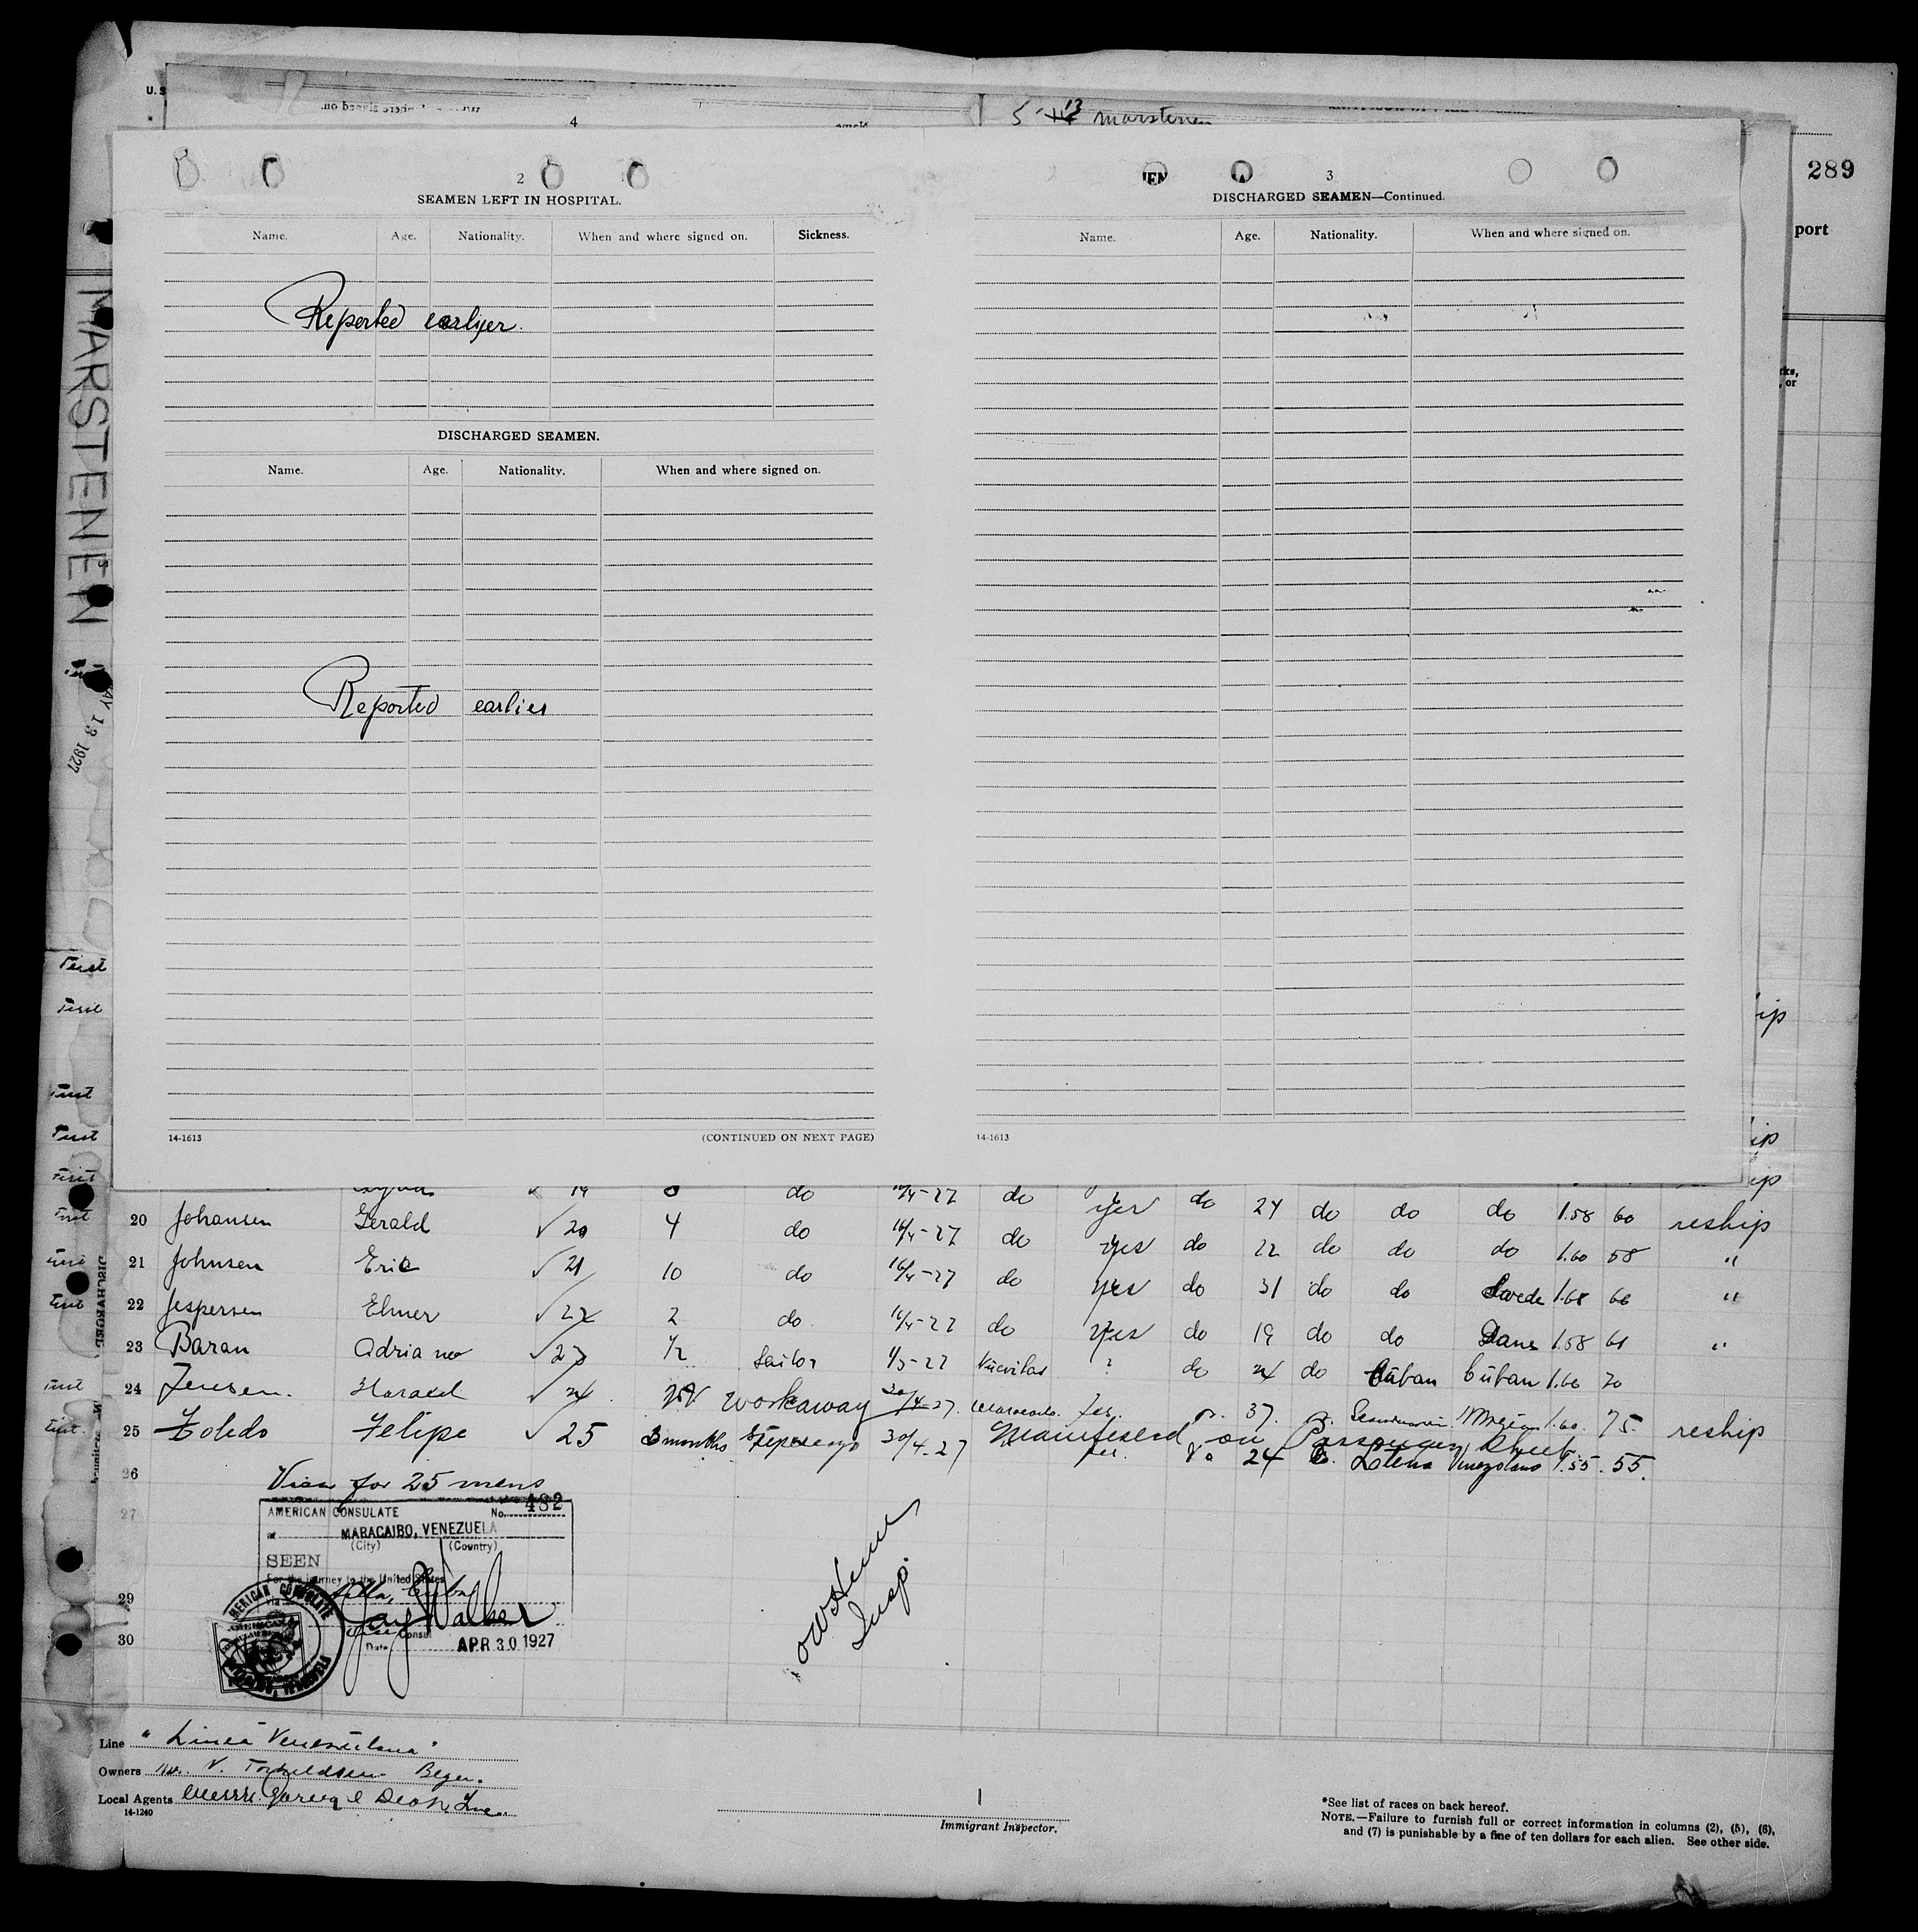 U.S
4
5-13 Marstenen
289
port
MARSTENEN
MAY 13 1927
2
SEAMEN LEFT IN HOSPITAL.
Name. Age. Nationality. When and where signed on. Sickness.
Reported earlyer.
DISCHARGED SEAMEN.
Name. Age. Nationality. When and where signed on.
Reported earlier
14-1613 (CONTINUED ON NEXT PAGE)
3
DISCHARGED SEAMEN—Continued.
Name. Age. Nationality. When and where signed on.
14-1613
19 8 do 16/4-27 do yes do 24 do do do 1.58 60 reship
20 Johansen Gerald 20 4 do 16/4-27 do yes do 22 do do do 1.60 58 "
21 Johnsen Eric 21 10 do 16/4-27 do yes do 31 do do Swede 1.68 66 "
22 Jespersen Elmer 22 2 do 16/4-27 do yes do 19 do do Dane 1.58 61 "
23 Baran Adriano 23 1/2 Sailor 1/3-27 Nuevitas ? do 24 do Cuban Cuban 1.60 70
24 Jensen. Harald 24 workaway 30/4-27. yes. 37. 75.
Manifested on Passenger Sheet
25 Toledo Felipe 25 3 months 30/4-27 yes. 24 Venezolano 1.55. 55. reship
26
Visa for 25 mens
27
AMERICAN CONSULATE No. 482
at MARACAIBO, VENEZUELA
(City) (Country)
SEEN
For the journey to the United States
via Antilla, Cuba
Jay Walker
Vice Consul
Date APR 30 1927
AMERICAN CONSULATE
29
30
Insp.
Line "Linea Venezuelana"
Owners V. Torkildsen Bergen.
Local Agents Messrs. Garcia & Diaz Inc.
14-1240
Immigrant Inspector.
*See list of races on back hereof.
NOTE.—Failure to furnish full or correct information in columns (2), (5), (6),
and (7) is punishable by a fine of ten dollars for each alien. See other side.